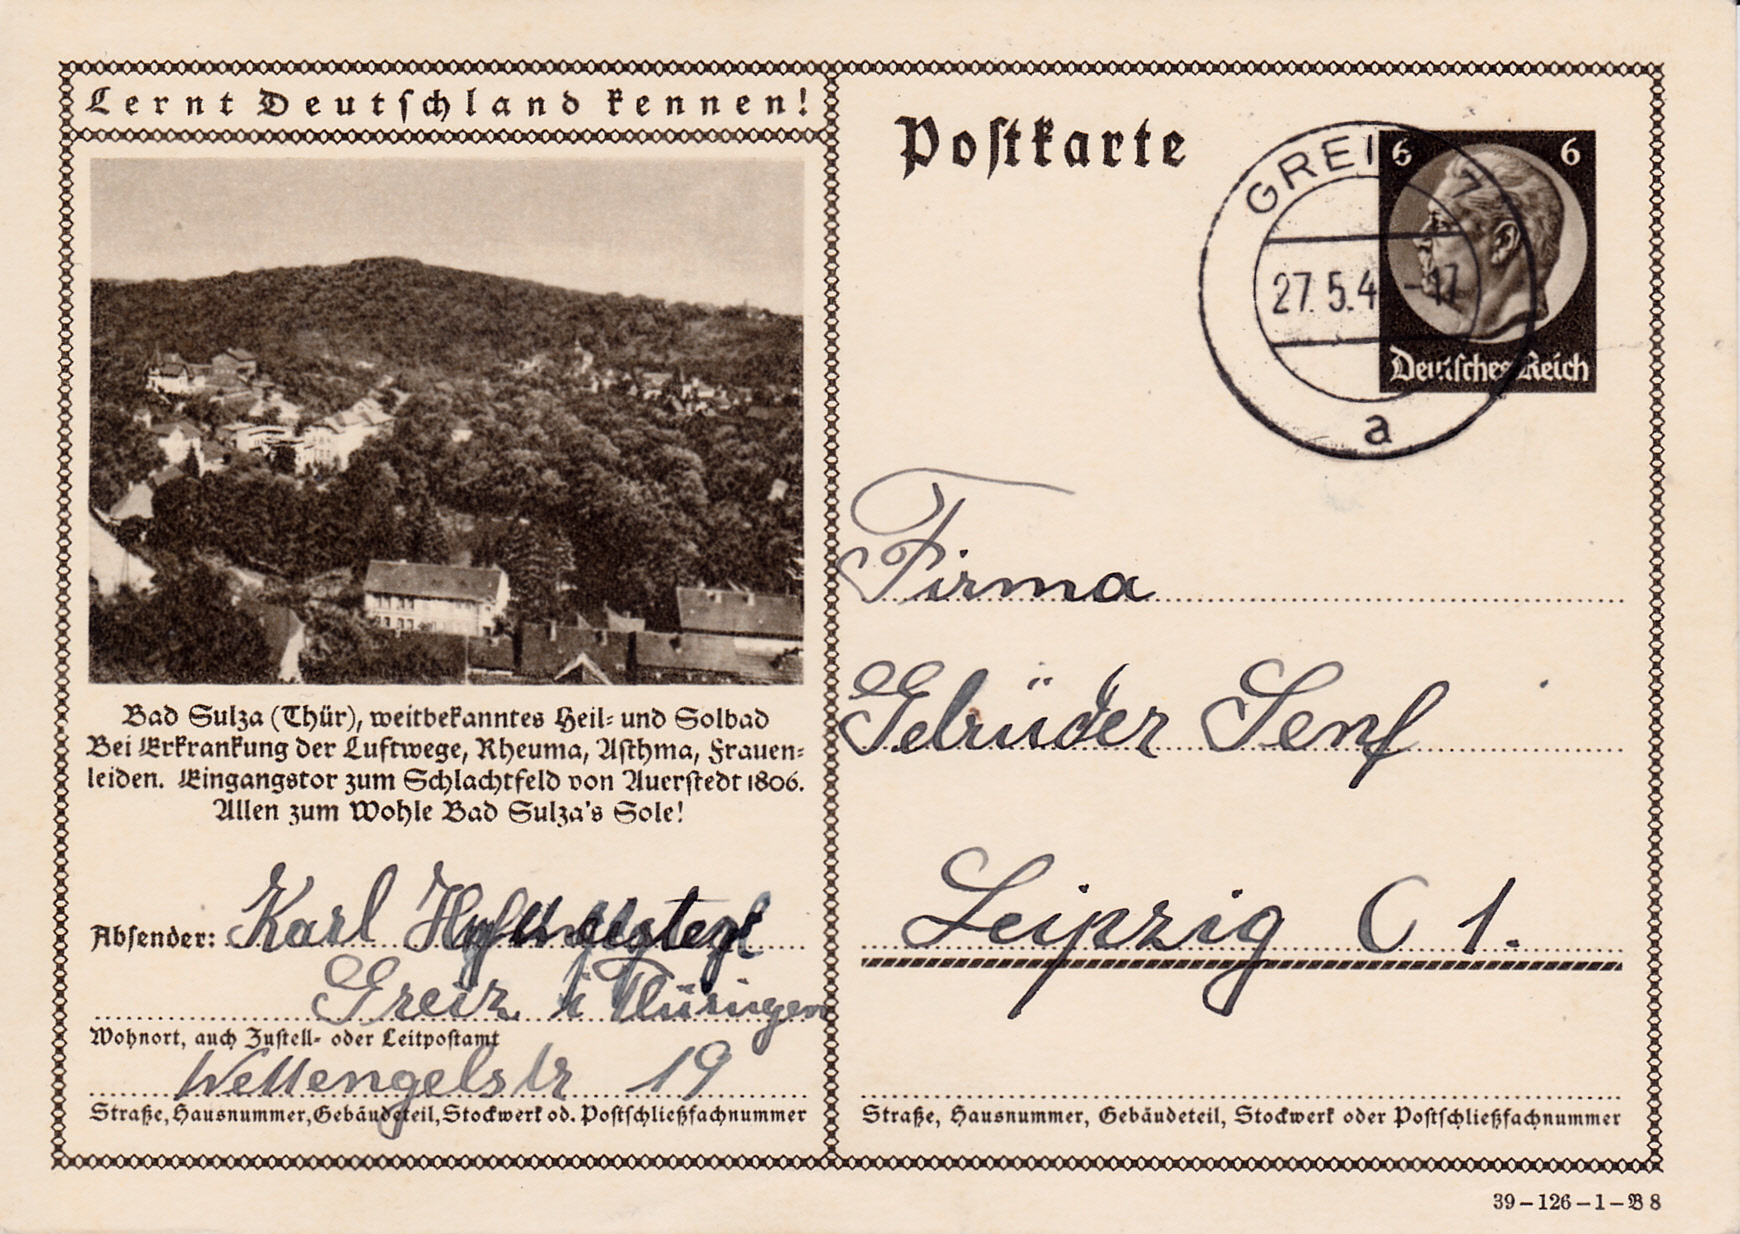 Lernt Deutschland kennen!
Bad Sulza (Thür), weitbekanntes Heil- und Solbad
Bei Erkrankung der Luftwege, Rheuma, Asthma, Frauen-
leiden. Eingangstor zum Schlachtfeld von Auerstedt 1806.
Allen zum Wohle Bad Sulza's Sole!
Absender: Karl
Greiz i Thüringen
Wohnort, auch Zustell- oder Leitpostamt
Wettengelstr 19
Straße, Hausnummer, Gebäudeteil, Stockwerk od. Postschließfachnummer
Postkarte
GREIZ 1
27.5.4 -17
a
6 6
Deutsches Reich
Firma
Gebrüder Senf
Leipzig C 1.
Straße, Hausnummer, Gebäudeteil, Stockwerk oder Postschließfachnummer
39-126-1-B 8